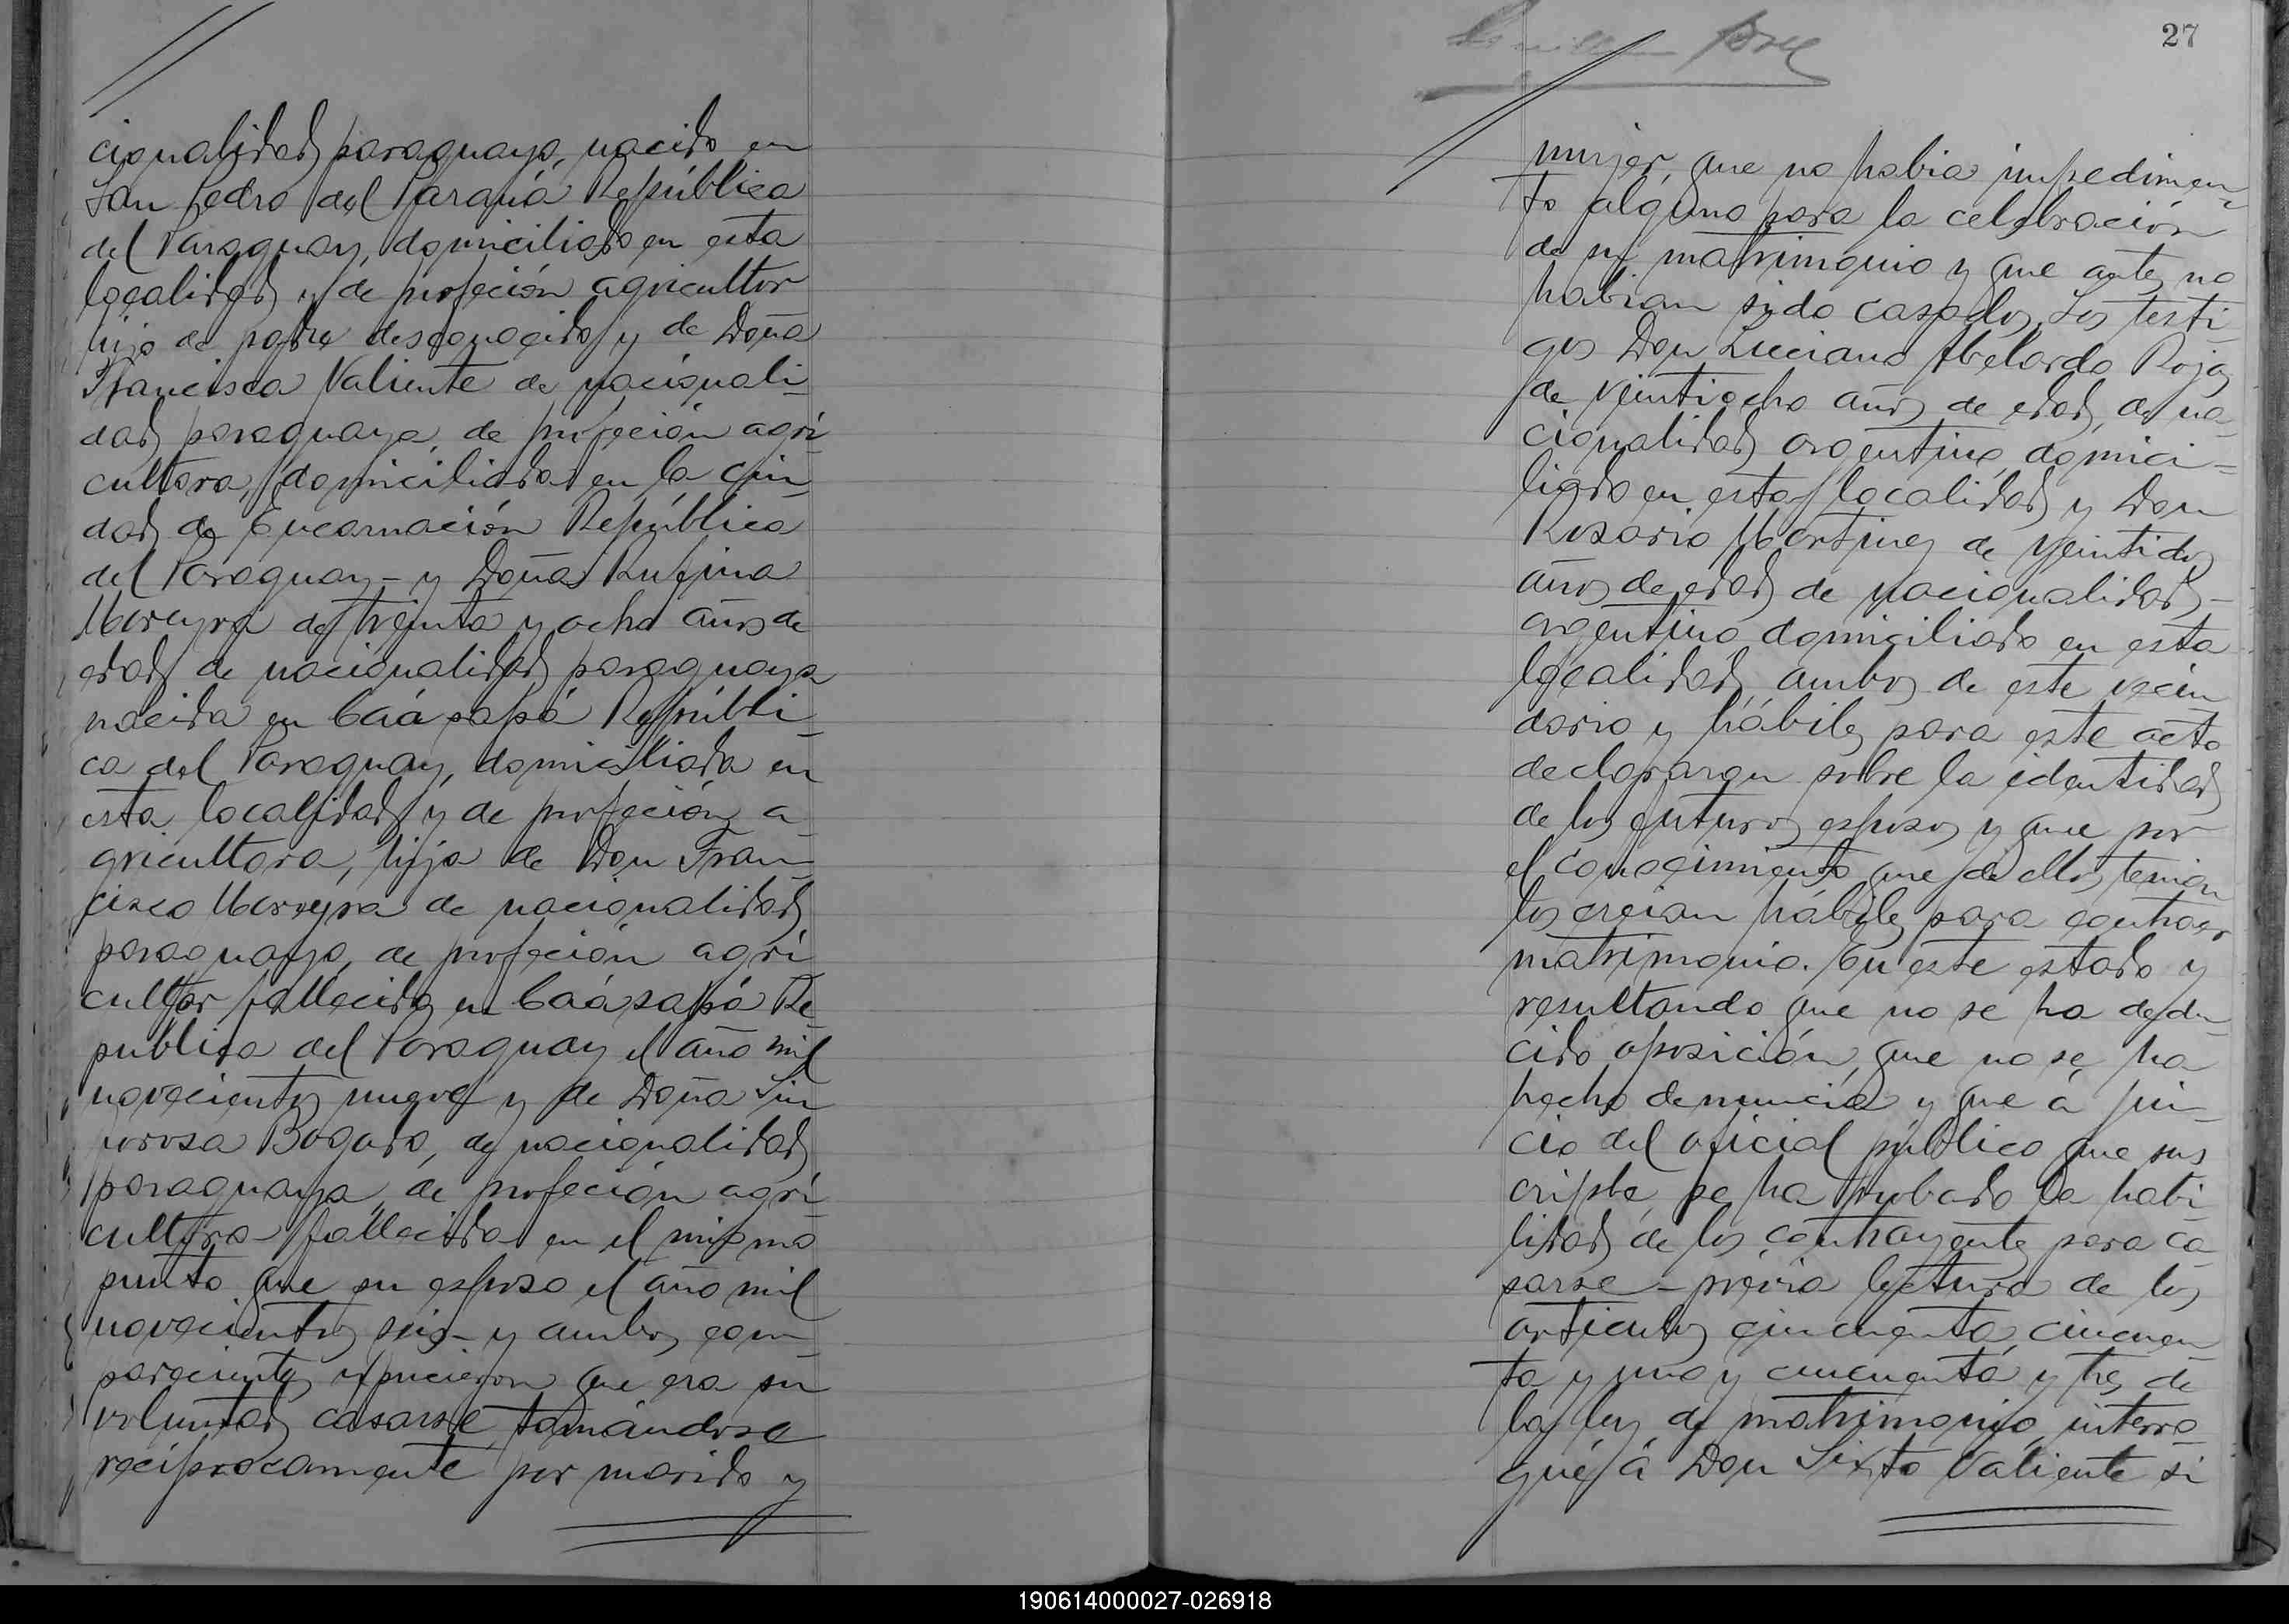 cionalidad paraguaya, nacido en
San Pedro del Paraná República
del Paraguay, domiciliado en esta
localidad y de profeción agricultor
hijo de padre desconocido y de Doña
Francisca Valiente de nacionali-
dad paraguaya, de profeción agri-
cultora, domiciliada en la ciu-
dad de Encarnación República
del Paraguay - y Doña Rufina
Moreyra de treinta y ocho años de
edad de nacionalidad paraguaya
nacida en Caá sapá Repúbli-
ca del Paraguay, domiciliada en
esta localidad y de profeción a-
gricultora, hija de Don Fran-
cisco Moreyra de nacionalidad
paraguayo, de profeción agri-
cultor fallecido en Caásapá Re-
publica del Paraguay el año mil
novecientos nueve y de Doña Sin-
forosa Bogado, de nacionalidad
paraguaya, de profeción agri-
cultora fallecida en el mismo
punto que su esposo el año mil
novecientos seis - y ambos com-
parecientes expucieron que era su
voluntad casarse, tomándose
reciprocamente por marido y
27
mujer, que no habia impedimen-
to alguno para la celebración
de su matrimonio y que antes no
habian sido casados. Los testi-
gos Don Luciano Abelardo Rojas
de veintiocho años de edad, de na-
cionalidad argentino, domici-
liado en esta localidad y Don
Rosario Martinez de veintidos
años de edad de nacionalidad -
argentino, domiciliado en esta
localidad, ambos de este vecin-
dario y hábiles para este acto
declararon sobre la identidad
de los futuros esposos y que por
el conocimiento que de ellos tenian
los creian hábiles para contraer
matrimonio. En este estado y
resultando que no se ha dedu-
cido oposición, que no se ha
hecho denuncia y que á jui-
cio del oficial público que sus-
cribe, se ha probado la habi-
lidad de los contrayentes para ca-
sarse - prévia lectura de los
articulos cincuenta, cincuen-
ta y uno y cincuenta y tres de
la ley de matrimonio, interro-
gué á Don Sixto Valiente si
190614000027-026918